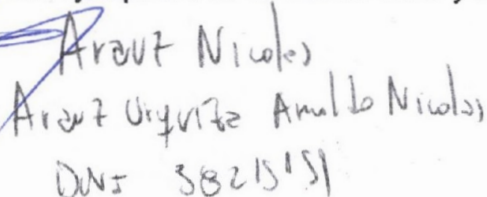 Arauz Nicolas
Arauz Urquiza Arnaldo Nicolas
DNI 38215151